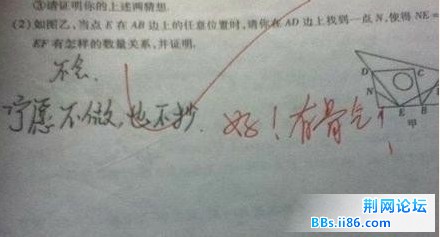 ③请证明你的上述两猜想.
(2)如图乙,当点 E 在 AB 边上的任意位置时,请你在 AD 边上找到一点 N,使得 NE=
EF 有怎样的数量关系,并证明.
不会.
宁愿不做,也不抄. 好!有骨气!
D C
N
A E B
甲
荆网论坛
BBs.ii86.com